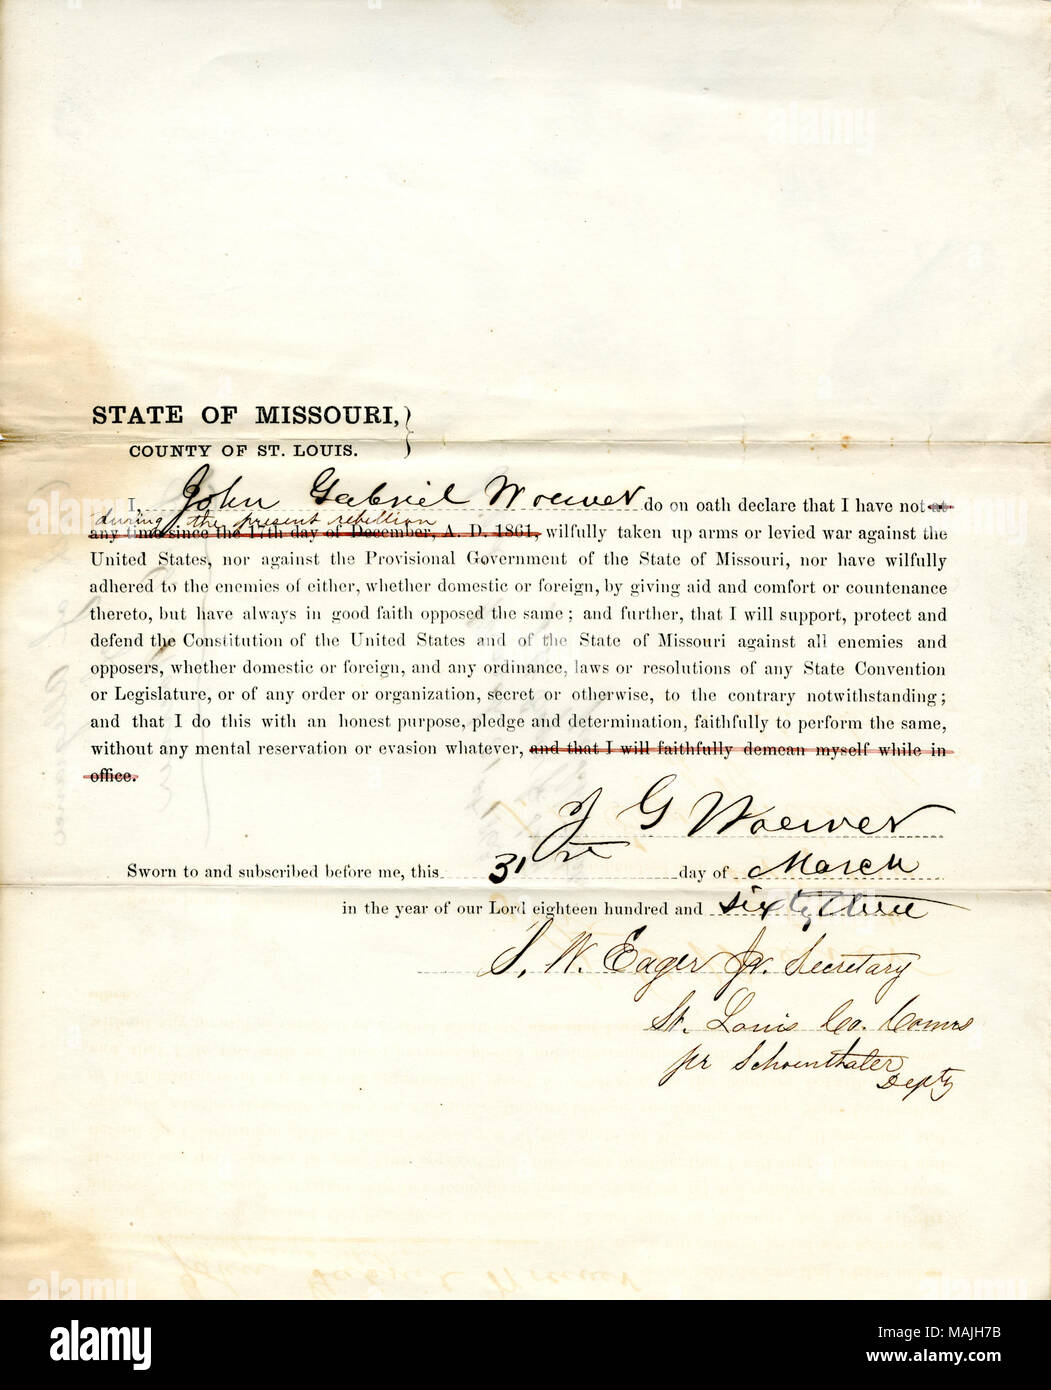 STATE OF MISSOURI,
COUNTY OF ST. LOUIS.
I, John Gabriel Woewer do on oath declare that I have not at
during the present rebellion
any time since the 17th day of December, A. D. 1861, wilfully taken up arms or levied war against the
United States, nor against the Provisional Government of the State of Missouri, nor have wilfully
adhered to the enemies of either, whether domestic or foreign, by giving aid and comfort or countenance
thereto, but have always in good faith opposed the same; and further, that I will support, protect and
defend the Constitution of the United States and of the State of Missouri against all enemies and
opposers, whether domestic or foreign, and any ordinance, laws or resolutions of any State Convention
or Legislature, or of any order or organization, secret or otherwise, to the contrary notwithstanding;
and that I do this with an honest purpose, pledge and determination, faithfully to perform the same,
without any mental reservation or evasion whatever, and that I will faithfully demean myself while in
office.
J G Woewer
Sworn to and subscribed before me, this 31st day of March
in the year of our Lord eighteen hundred and sixty three
S. W. Eager Jr. Secretary
St. Louis Co. Comrs
pr Schoenthaler
Depty
alamy
Image ID: MAJH7B
www.alamy.com